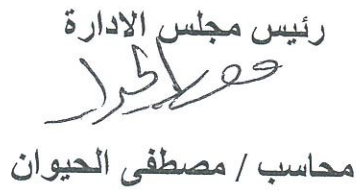 رئيس مجلس الادارة
محاسب / مصطفى الحيوان